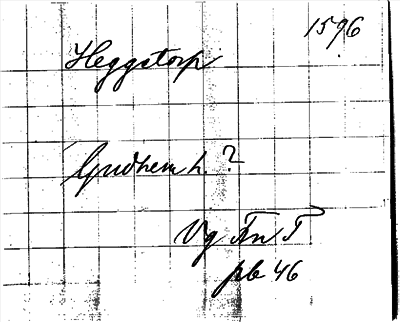 1596
Heggstorp
Gudhem h. ?
Vg Fn T
pb 46